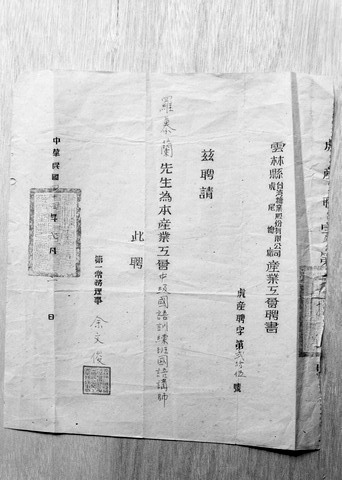 雲林縣台湾糖業股份有限公司虎尾總廠產業工會聘書
虎產聘字第貳拾伍號
茲聘請
羅泰蘭先生為本產業工會中級國語訓練班國語講師
此聘
第一常務理事 余文俊
中華民國 年 月 一日